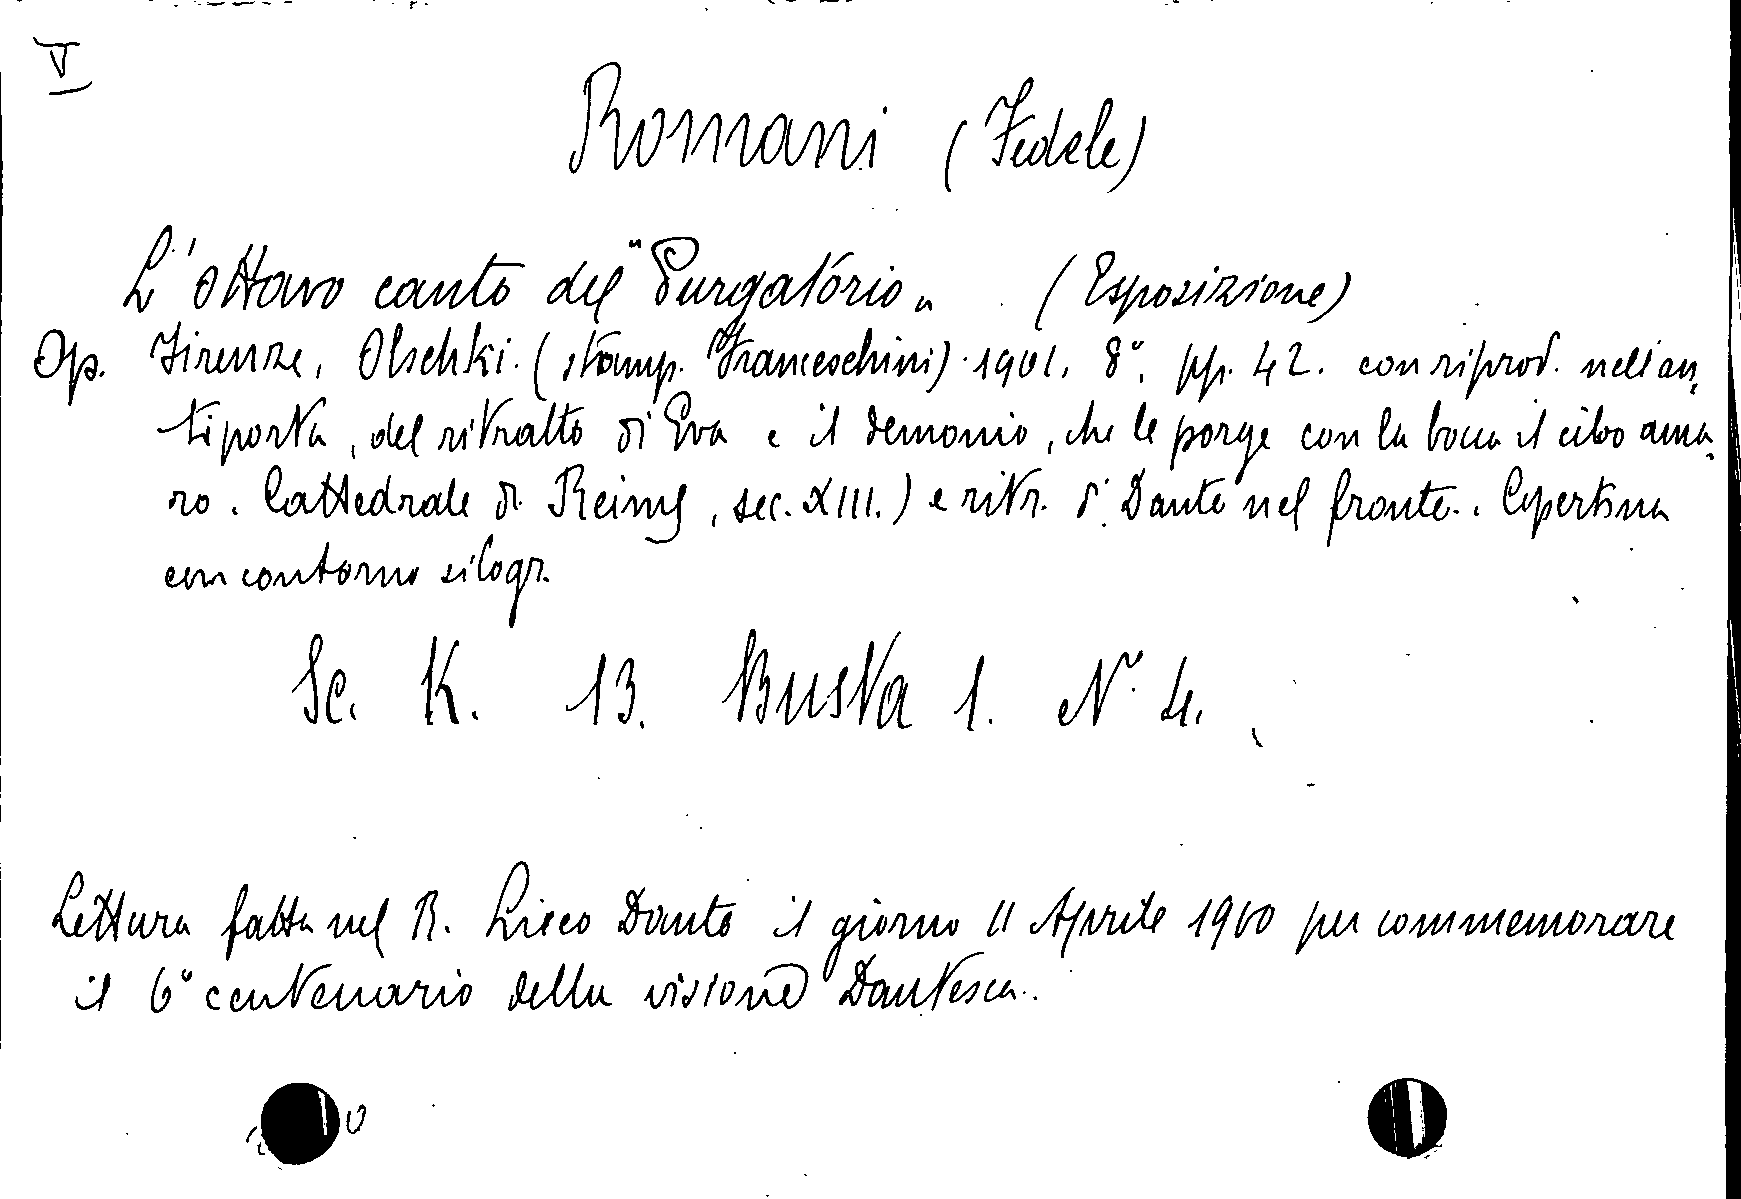 V
Romani (Fedele)
L'ottavo canto del "Purgatorio„ (Esposizione)
Op. Firenze, Olschki. (stamp. Franceschini). 1901. 8°. pp. 42. con riprod. nell'an-
tiporta, del ritratto di Eva e il demonio, che le porge con la bocca il cibo ama-
ro. Cattedrale di Reims, sec. XIII.) e ritr. di Dante nel fronte.. Copertina
con contorno silogr.
Sc. K. 13. Busta 1. N° 4.
Lettura fatta nel R. Liceo Dante il giorno 11 Aprile 1900 per commemorare
il 6° centenario della visione Dantesca.